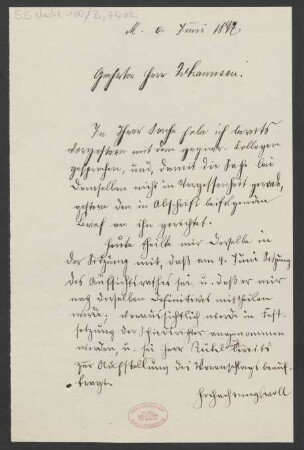 M. 6. Juni 1892
Geehrter Herr Johannsen!
In Ihrer Sache habe ich bereits
vorgestern mit dem gegner. Collegen
gesprochen, und, damit die Sache bei
demselben nicht in Vergessenheit gerate,
gestern den in Abschrift beifolgenden
Brief an ihn gerichtet.
Heute theilte mir derselbe in
der Sitzung mit, daß am 9. Juni Sitzung
des Aufsichtsrathes sei u. daß er mir
nach derselben Definitives mittheilen
werde, voraussichtlich werde in Fest-
setzung der Schiedsrichter angenommen
werden, u. sei Herr bereits
zur Aufstellung des Voranschlags beauf-
tragt.
Hochachtungsvoll